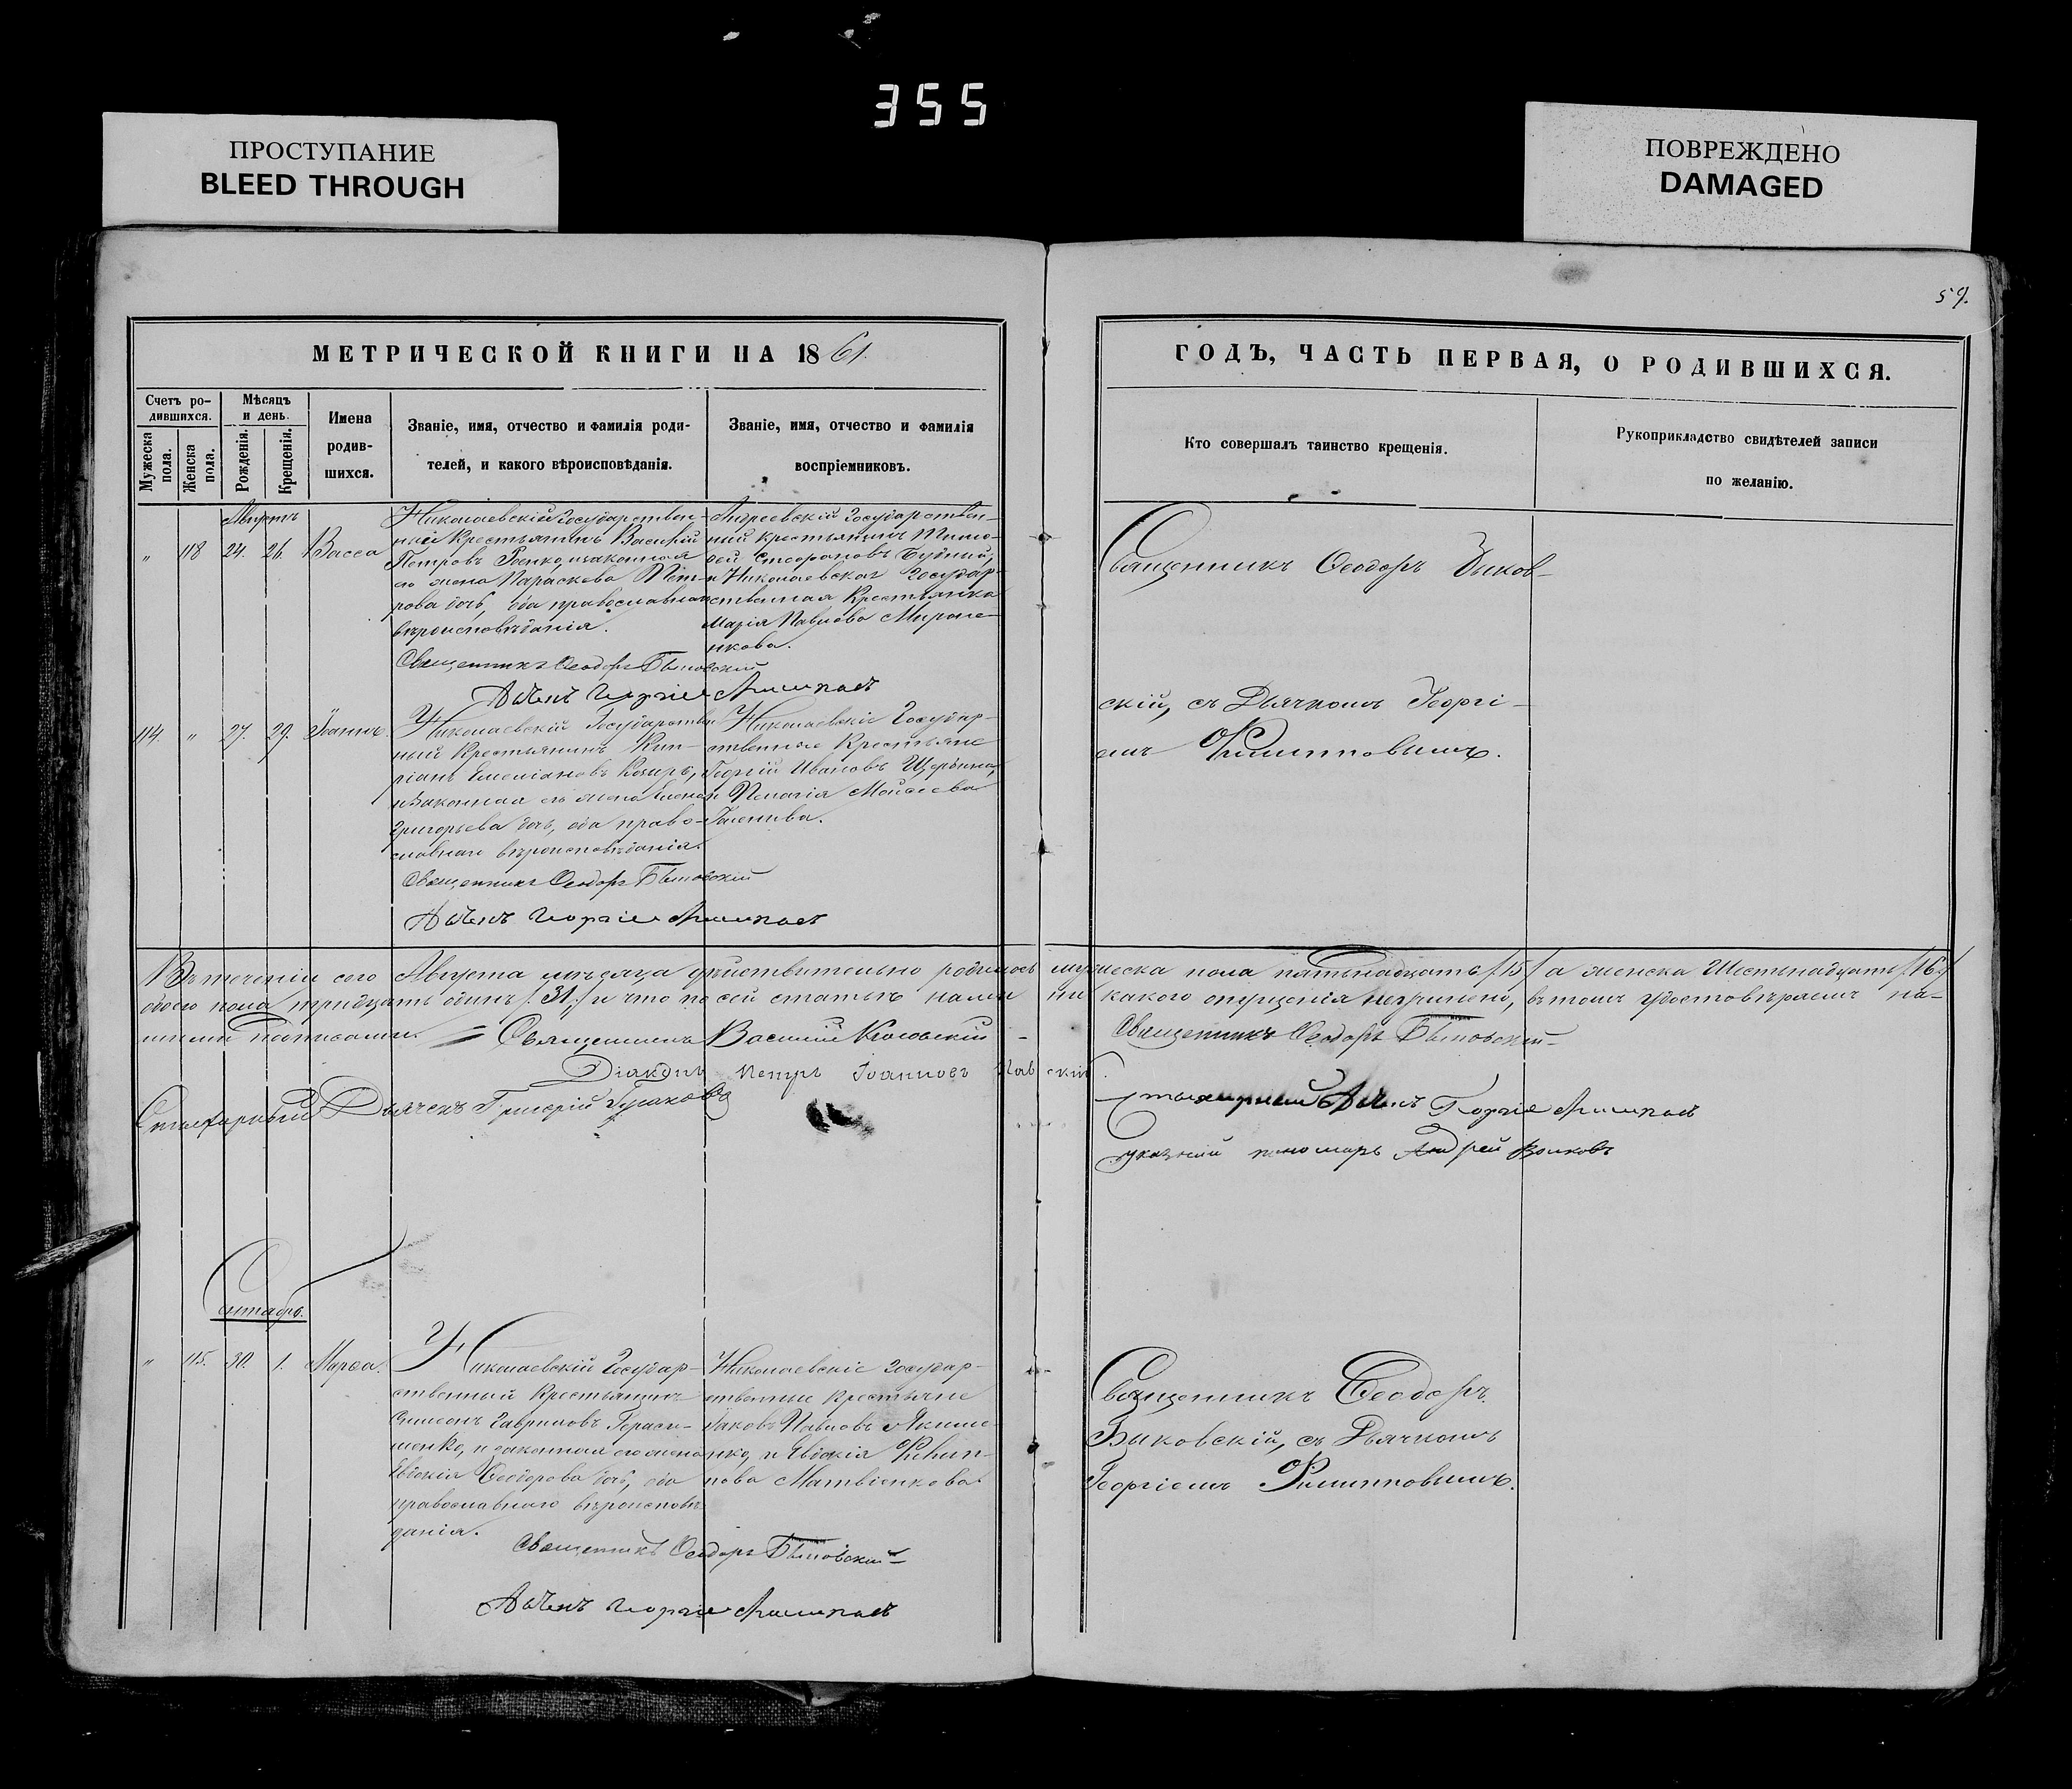 355
ПРОСТУПАНИЕ
BLEED THROUGH
ПОВРЕЖДЕНО
DAMAGED
59.
МЕТРИЧЕСКОЙ КНИГИ НА 1861.
ГОДЪ, ЧАСТЬ ПЕРВАЯ, О РОДИВШИХСЯ.
Счетъ ро-
дившихся.
Мужеска
пола.
Женска
пола.
Мѣсяцъ
и день.
Рожденія.
Крещенія.
Имена
родив-
шихся.
Званіе, имя, отчество и фамилія роди-
телей, и какого вѣроисповѣданія.
Званіе, имя, отчество и фамилія
воспріемниковъ.
Кто совершалъ таинство крещенія.
Рукоприкладство свидѣтелей записи
по желанію.
Августъ
" 118 24. 26. Васса
Николаевскій Государствен-
ный Крестьянинъ Василій
Петровъ законная
его жена Параскева Пет-
рова дочь, оба православнаго
вѣроисповѣданія.
Андреевскій Государствен-
ный крестьянинъ Тимо-
фей Стефановъ
и Николаевская Государ-
ственная Крестьянка
Марія Павлова Мироне-
нкова.
Священникъ Ѳеодоръ
Священникъ Ѳеодоръ Быков-
скій, съ Дьячкомъ Георгі-
емъ Филипповымъ.
114. " 27. 29. Іоаннъ.
Николаевскій Государствен
ный Крестьянинъ Кип-
ріанъ Емеліановъ Козырь,
и Законная его жена Елена
Григорьева дочь, оба право-
славнаго вѣроисповѣданія.
Николаевскіе Государ-
ственные Крестьяне
Георгій Ивановъ
и Пелагія Моисеева
Священникъ Ѳеодоръ
Въ теченіи сего Августа мѣсяца дѣйствительно родилось мужеска пола пятьнадцать /15/ а женска Шестьнадцать /16/
обоего пола тридцать одинъ /31/ и что по сей статьѣ нами ни какого опущенія неучинено, въ томъ удостовѣряемъ на-
шими подписами. = Священникъ Василій
Священникъ Ѳеодоръ
Діаконъ Петръ Іоанновъ
Стихарный Дьячекъ Григорій
Георгіе
Указный пономарь Андрей Волковъ
Сентябрь.
" 115. 30. 1. Марѳа.
Николаевскій Государ-
ственный Крестьянинъ
Симеонъ Гавриловъ Гераси-
менко, и законная его жена
Евдокія Ѳеодорова дочь, оба
православнаго вѣроисповѣ
данія.
Николаевскіе Государ-
ственные Крестьяне
Іаковъ Павловъ Якиме-
нко, и Евдокія Филип-
пова Матвіенкова.
Священникъ Ѳеодоръ
Быковскій, съ Дьячкомъ
Георгіемъ Филипповымъ.
Священникъ Ѳеодоръ